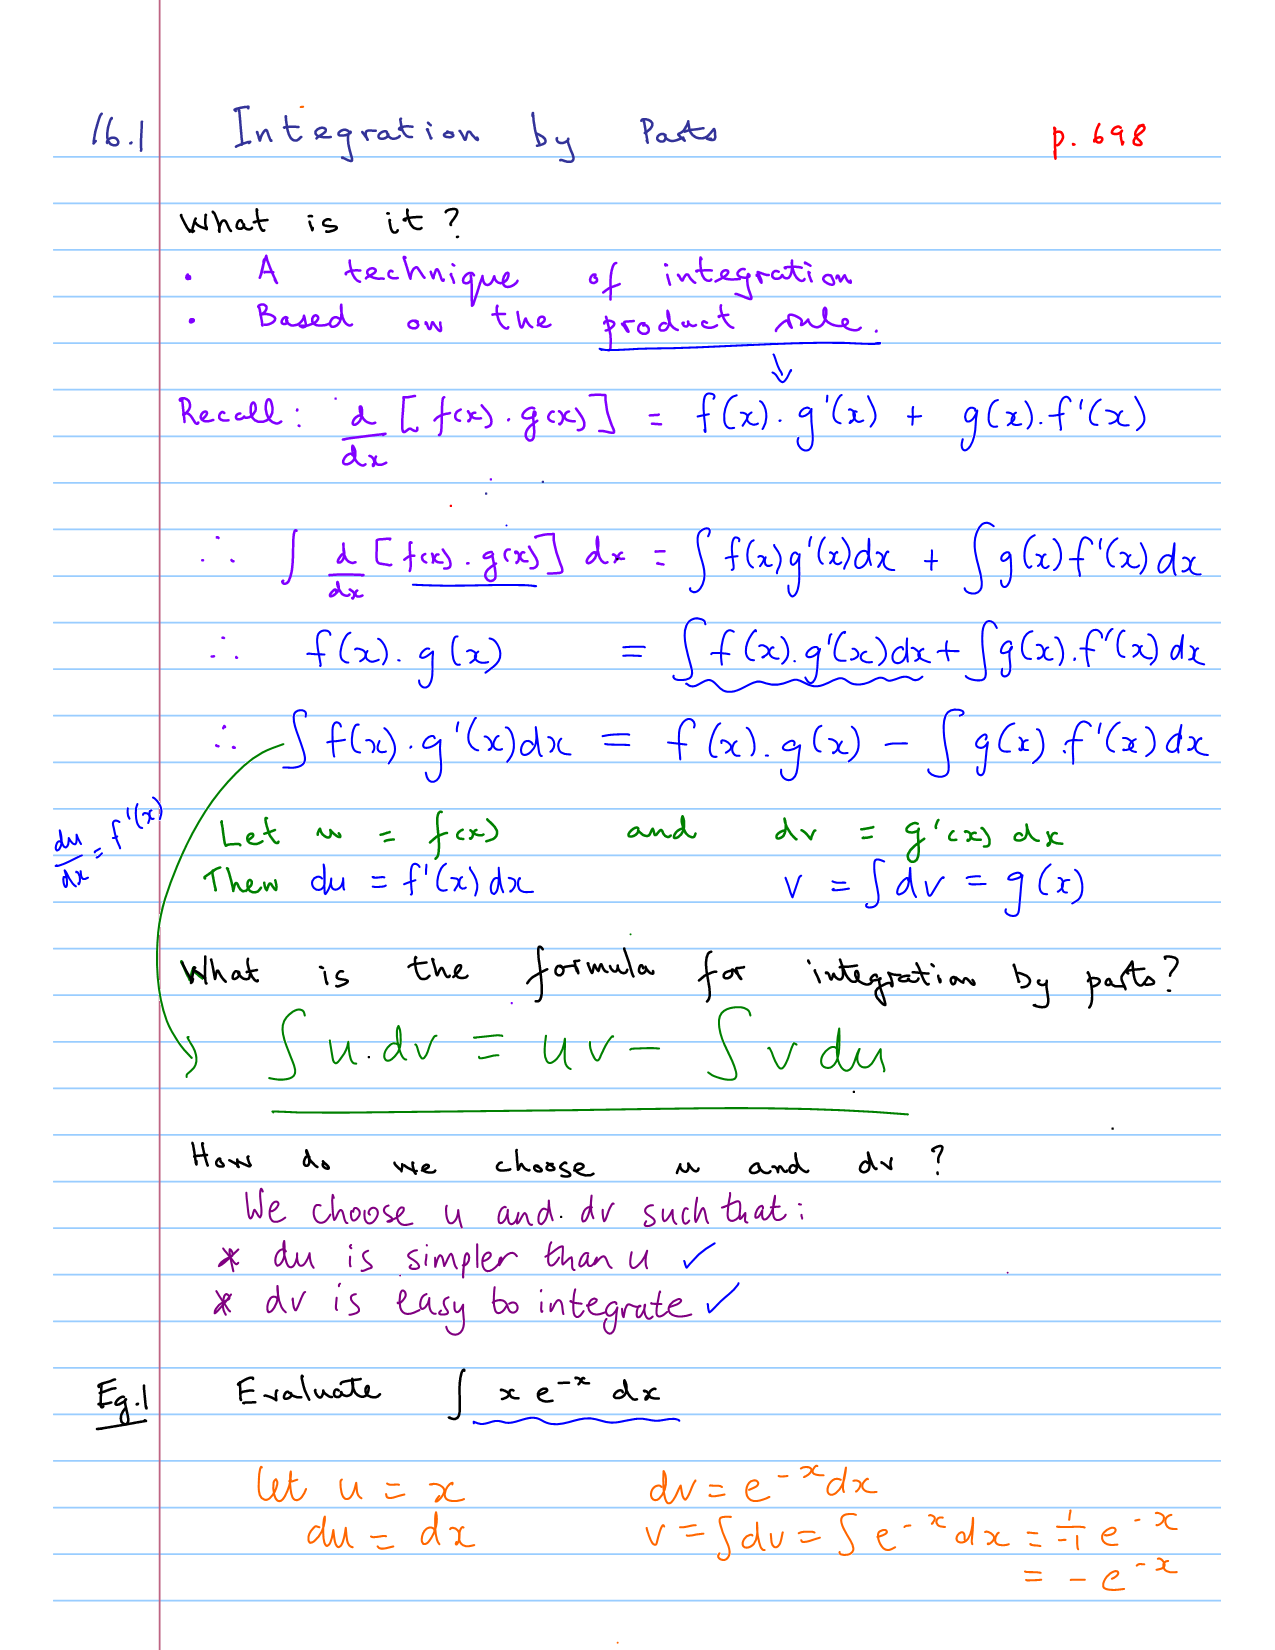 16.1 Integration by Parts p. 698
What is it?
• A technique of integration
• Based on the product rule.
↓
Recall: d/dx [f(x) · g(x)] = f(x) · g'(x) + g(x) · f'(x)
∴ ∫ d/dx [f(x) · g(x)] dx = ∫ f(x) g'(x) dx + ∫ g(x) f'(x) dx
∴ f(x) · g(x) = ∫ f(x) · g'(x) dx + ∫ g(x) · f'(x) dx
∴ ∫ f(x) · g'(x) dx = f(x) · g(x) − ∫ g(x) · f'(x) dx
du/dx = f'(x)
Let u = f(x) and dv = g'(x) dx
Then du = f'(x) dx v = ∫ dv = g(x)
What is the formula for integration by parts?
∫ u · dv = uv − ∫ v du
How do we choose u and dv?
We choose u and dv such that:
* du is simpler than u ✓
* dv is easy to integrate ✓
Eg.1 Evaluate ∫ x e^{-x} dx
let u = x dv = e^{-x} dx
du = dx v = ∫ dv = ∫ e^{-x} dx = 1/-1 e^{-x}
= - e^{-x}